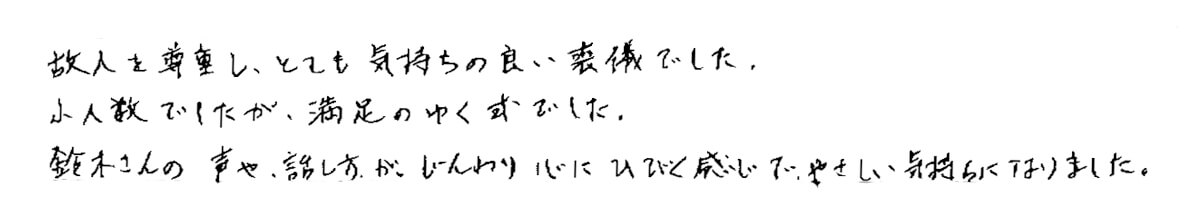 故人を尊重し、とても気持ちの良い葬儀でした。
小人数でしたが、満足のゆく式でした。
鈴木さんの声や、話し方が、じんわり心にひびく感じで、やさしい気持ちになりました。